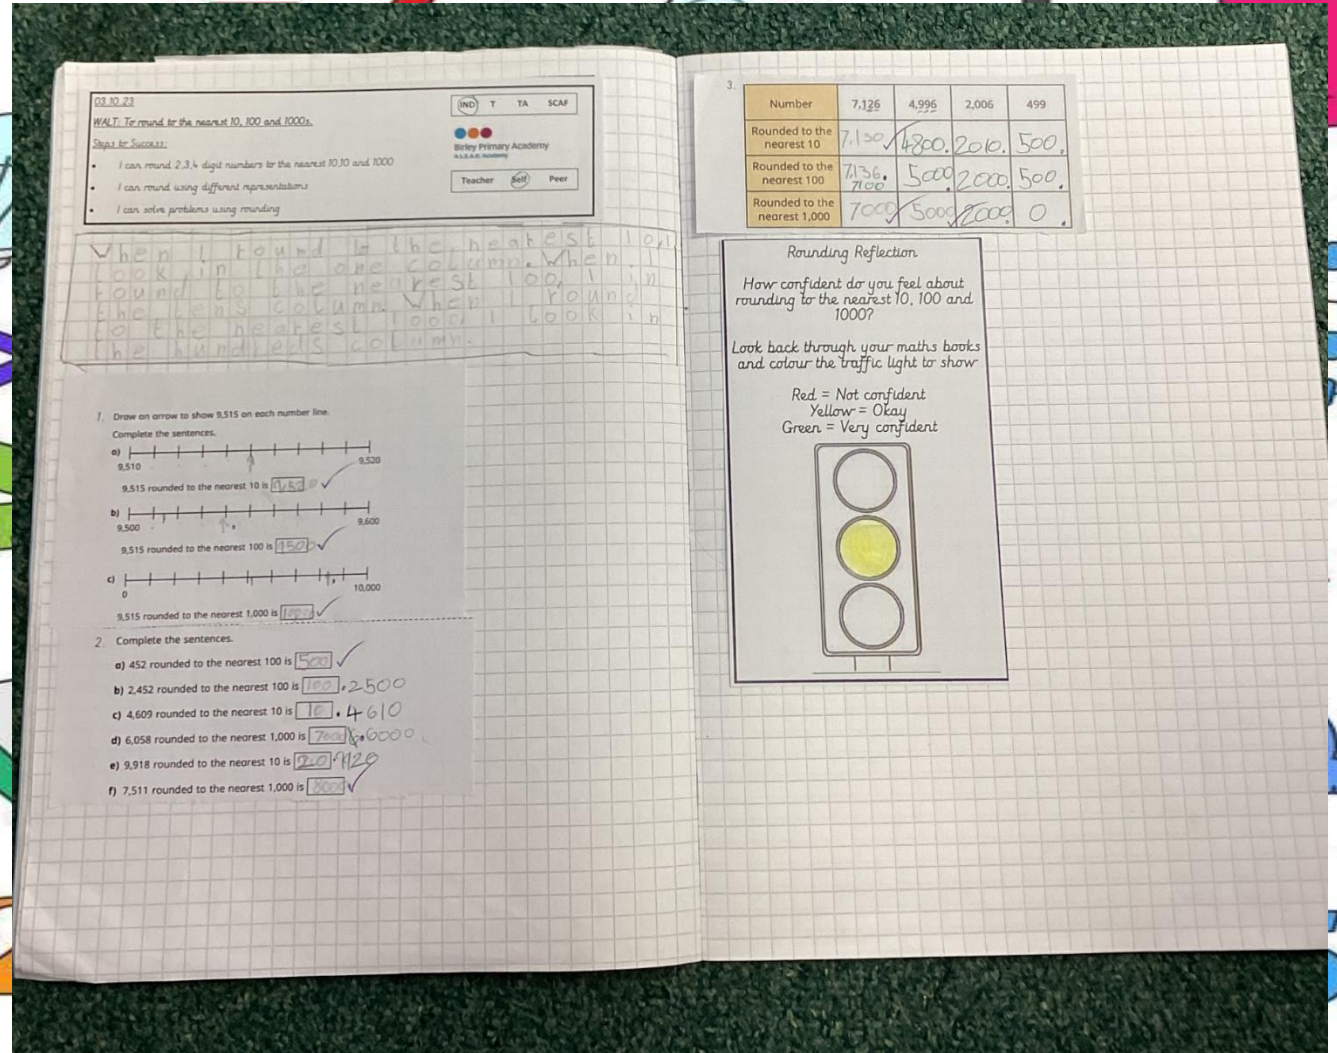 03.10.23
WALT: To round to the nearest 10, 100 and 1000s.
Steps to Success:
I can round 2,3,4 digit numbers to the nearest 10,10 and 1000
I can round using different representations
I can solve problems using rounding
IND T TA SCAF
Birley Primary Academy
A L.E.A.D. Academy
Teacher Self Peer
When I round to the nearest 10, I
look in the one column. When I
round to the nearest 100, I in
the column. When round
to the nearest 1000, I look in
the hundreds column
1. Draw an arrow to show 9,515 on each number line.
Complete the sentences.
a)
9,510 9,520
9,515 rounded to the nearest 10 is
b)
9,500 9,600
9,515 rounded to the nearest 100 is
c)
0 10,000
9,515 rounded to the nearest 1,000 is
2. Complete the sentences.
a) 452 rounded to the nearest 100 is 500
b) 2,452 rounded to the nearest 100 is 100 . 2500
c) 4,609 rounded to the nearest 10 is 10 . 4610
d) 6,058 rounded to the nearest 1,000 is 7000 .6000
e) 9,918 rounded to the nearest 10 is
f) 7,511 rounded to the nearest 1,000 is 8000
3.
Number 7,126 4,996 2,006 499
Rounded to the nearest 10 7,130 4800. 2010. 500.
Rounded to the nearest 100 7,136. 7100 5000 2000 500.
Rounded to the nearest 1,000 7000 5000 2000 0.
Rounding Reflection
How confident do you feel about
rounding to the nearest 10, 100 and
1000?
Look back through your maths books
and colour the traffic light to show
Red = Not confident
Yellow = Okay
Green = Very confident